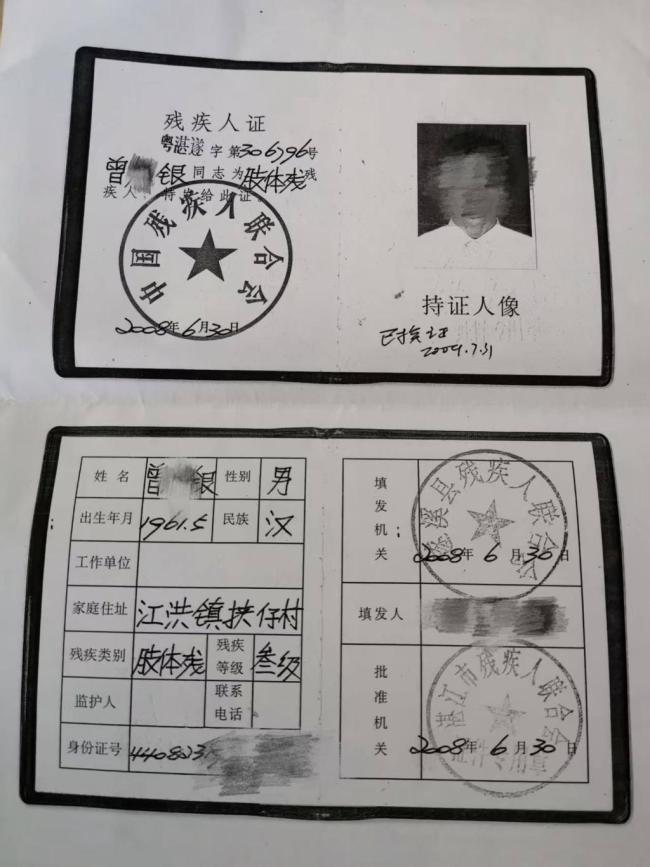 残疾人证
粤湛遂字第306796号
曾 银同志为肢体残残
疾人,特发给此证。
中国残疾人联合会
2008年6月30日
持证人像
已换证
2009.7.31
姓名 曾 银 性别 男
出生年月 1961.5 民族 汉
工作单位
家庭住址 江洪镇扶仔村
残疾类别 肢体残 残疾等级 叁级
监护人 联系电话
身份证号 440823
填发机关
遂溪县残疾人联合会
2008年6月30日
填发人
批准机关
湛江市残疾人联合会
证件专用章
2008年6月30日